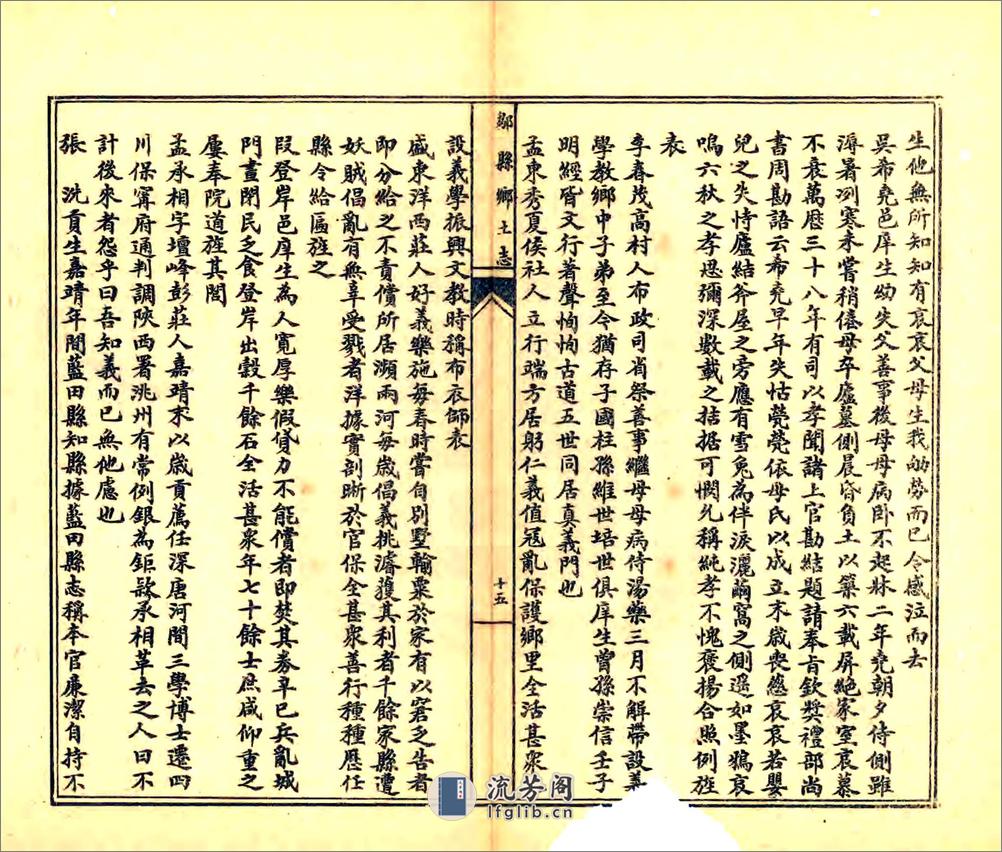 生他無所知知有哀哀父母生我劬勞而已令感泣而去
吳希堯邑庠生幼失父善事後母母病卧不起牀二年堯朝夕侍側雖
溽暑冽寒未嘗稍倦母卒廬墓側晨昏負土以築六載屏絕家室哀慕
不衰萬曆三十八年有司以孝聞諸上官勘結題請奉旨欽獎禮部尚
書周勘語云希堯早年失怙煢煢依母氏以成立末歲喪慈哀哀若嬰
兒之失恃廬結斧屋之旁應有雪兎為伴淚灑繭窩之側遥如墨鴉哀
鳴六秋之孝思彌深數載之拮据可憫允稱純孝不愧褒揚合照例旌
表
李春茂高村人布政司省祭善事繼母母病侍湯藥三月不解帶設義
學教鄉中子弟至今猶存子國柱孫維世培世俱庠生曾孫崇信壬子
明經皆文行著聲恂恂古道五世同居真義門也
孟東秀夏侯社人立行端方居躬仁義值寇亂保護鄉里全活甚眾
鄒縣鄉土志
十五
設義學振興文教時稱布衣師表
盛東洋西莊人好義樂施每春時嘗自別墅輸粟於家有以窘乏告者
即分給之不責償所居瀕兩河每歲倡義挑濬獲其利者千餘家縣遭
妖賊倡亂有無辜受戮者洋據實剖晰於官保全甚眾善行種種歷任
縣令給匾旌之
段登岸邑庠生為人寬厚樂假貸力不能償者即焚其券辛巳兵亂城
門晝閉民乏食登岸出穀千餘石全活甚眾年七十餘士庶咸仰重之
屢奉院道旌其閭
孟承相字壇峰彭莊人嘉靖末以歲貢薦任深唐河間三學博士遷四
川保寗府通判調陝西署洮州有常例銀為鉅欵承相革去之人曰不
計後來者怨乎曰吾知義而已無他慮也
張 洗貢生嘉靖年間藍田縣知縣據藍田縣志稱本官廉潔自持不
流芳阁
lfglib.cn